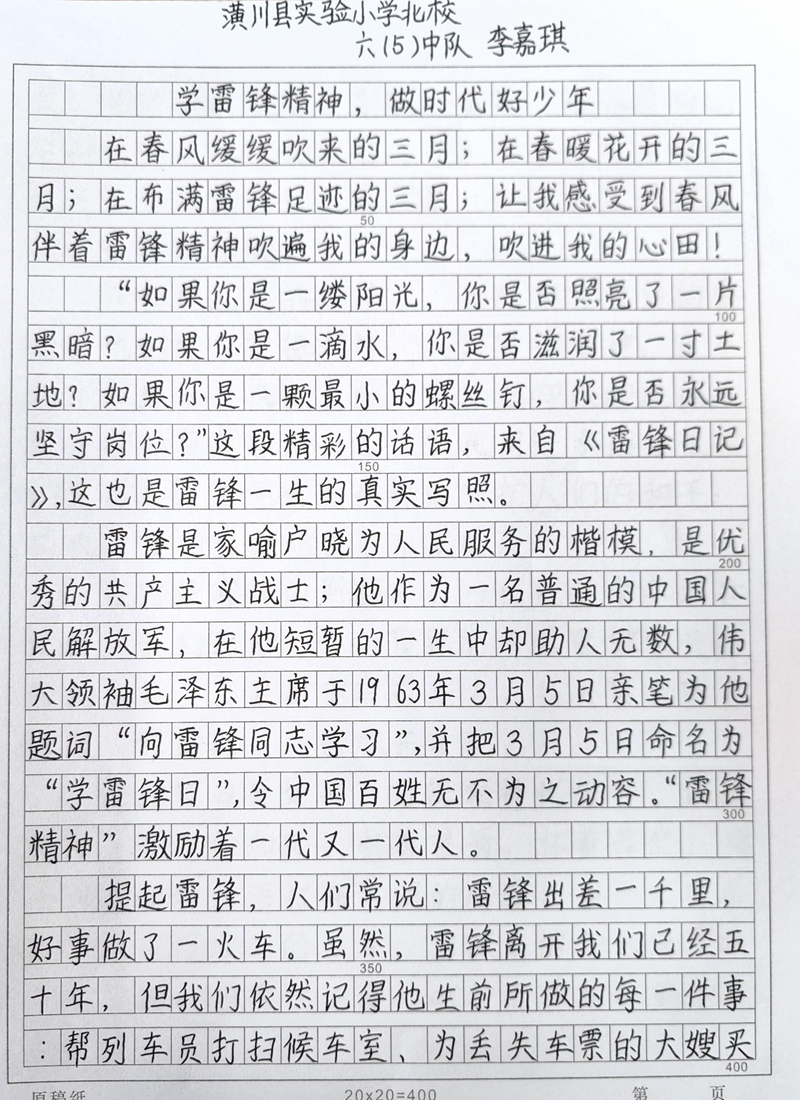 潢川县实验小学北校
六(5)中队 李嘉琪
学雷锋精神，做时代好少年
在春风缓缓吹来的三月；在春暖花开的三
月；在布满雷锋足迹的三月；让我感受到春风
50
伴着雷锋精神吹遍我的身边，吹进我的心田！
“如果你是一缕阳光，你是否照亮了一片
100
黑暗？如果你是一滴水，你是否滋润了一寸土
地？如果你是一颗最小的螺丝钉，你是否永远
坚守岗位？”这段精彩的话语，来自《雷锋日记
150
》，这也是雷锋一生的真实写照。
雷锋是家喻户晓为人民服务的楷模，是优
200
秀的共产主义战士；他作为一名普通的中国人
民解放军，在他短暂的一生中却助人无数，伟
大领袖毛泽东主席于1963年3月5日亲笔为他
题词“向雷锋同志学习”，并把3月5日命名为
“学雷锋日”，令中国百姓无不为之动容。“雷锋
300
精神”激励着一代又一代人。
提起雷锋，人们常说：雷锋出差一千里，
好事做了一火车。虽然，雷锋离开我们已经五
350
十年，但我们依然记得他生前所做的每一件事
：帮列车员打扫候车室、为丢失车票的大嫂买
400
原稿纸 20x20=400 第 页